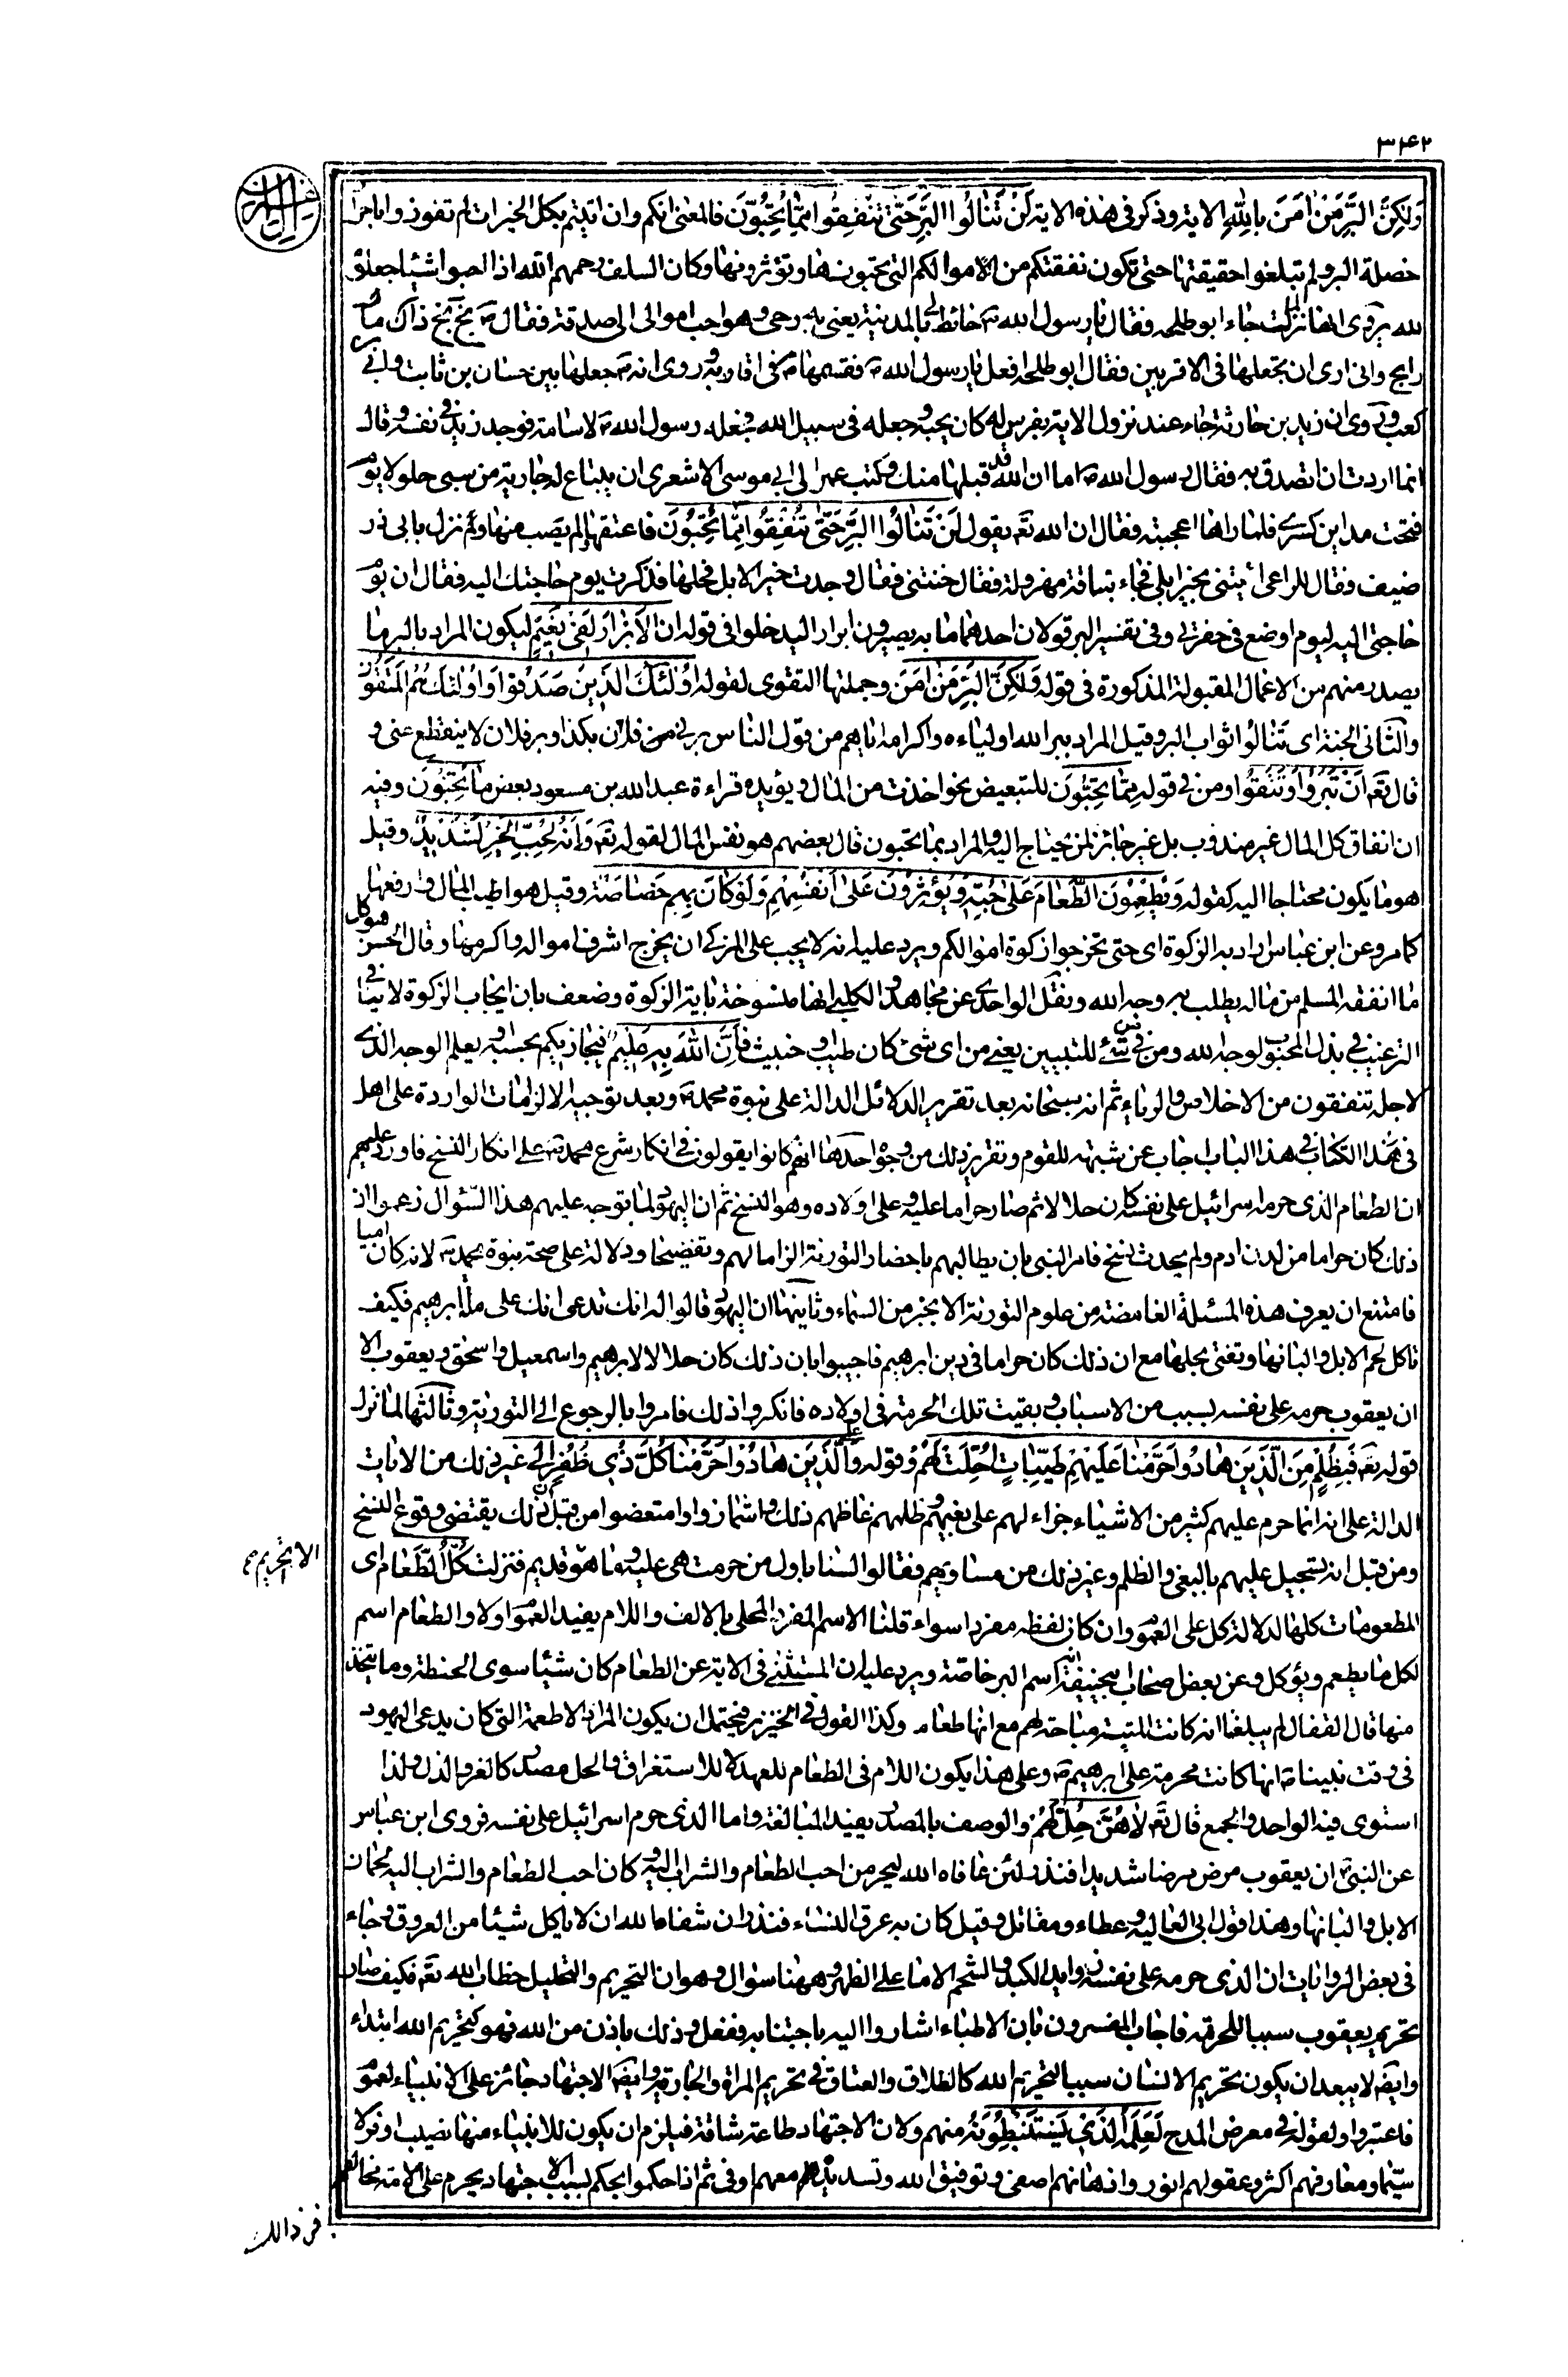 ٣٤٢
وَلٰكِنَّ الْبِرَّ مَنْ اٰمَنَ بِاللّٰهِ الاية وذكر في هذه الاية لَنْ تَنٰالُوا الْبِرَّ حَتّٰى تُنْفِقُوا مِمّٰا تُحِبُّونَ فالمعنى انكم وان اتيتم بكل الخيرات لم تفوزوا باحراز
خصلة البر ولم تبلغوا حقيقتها حتى تكون نفقتكم من الاموالكم التي تحبونها وتؤثرونها وكان السلف رحمهم الله اذا احبوا شيئا جعلوه
لله يروى انها لما نزلت جاء ابو طلحة فقال يا رسول الله ص حائط لي بالمدينة يعني بيرحى وهو احب اموالى الى صدقة فقال ص بخ بخ ذاك مال
رابح وانى ارى ان تجعلها فى الاقربين فقال ابو طلحة افعل يا رسول الله ص فقسمها فى اقاربه وروى انه ص جعلها بين حسان بن ثابت وابي بن
كعب وروى ان زيد بن حارثة جاء عند نزول الاية بفرس له كان يحبه وجعله فى سبيل الله فحمل عليه رسول الله ص اسامة فوجد زيد في نفسه وقال
انما اردت ان اتصدق به فقال رسول الله ص اما ان الله قد قبلها منك وكتب عمر الى ابي موسى الاشعرى ان يبتاع له جارية من سبى جلولا يوم
فتحت مداين كسرى فلما راها اعجبته فقال ان الله تعَ يقول لَنْ تَنٰالُوا الْبِرَّ حَتّٰى تُنْفِقُوا مِمّٰا تُحِبُّونَ فاعتقها ولم يصب منها ولم نزل بابى ذر
ضيف فقال للراعى ايتنى بخير ابلى فجاء بناقة مهزولة فقال خنتنى فقال وجدت خير الابل فحلها فذكرت يوم حاجتك اليه فقال ان يوم
حاجتى اليه ليوم اوضع فى حفرتى وفى تفسير البر قولان احدهما ما به يصيرون ابرار اليدخلوا فى قوله ان الْاَبْرٰارَ لَفى نَعيمٍ ليكون المراد بالبر ما
يصدر منهم من الاعمال المقبولة المذكورة فى قوله وَلٰكِنَّ الْبِرَّ مَنْ اٰمَنَ وجملتها التقوى لقوله اُولٰئِكَ الَّذينَ صَدَقُوا وَاُولٰئِكَ هُمُ الْمُتَّقُونَ
والثانى الجنة اى تنالوا ثواب البر وقيل المراد ببر الله اولياءه واكرامه اياهم من قول الناس برني فلان بكذا وبر فلان لا ينقطع عنى و
قال تعَ اَنْ تَبَرُّوا وَتَتَّقُوا ومن في قوله مِمّٰا تُحِبُّونَ للتبعيض نحو اخذت من المال ويؤيده قراءة عبد الله بن مسعود بعض مٰا تُحِبُّونَ وفيه
ان انفاق كل المال غير مندوب بل غير جائز لمن يحتاج اليه والمراد بما تحبون قال بعضهم هو نفس المال لقوله تعَ وَاِنَّهُ لِحُبِّ الْخَيْرِ لَشَديدٌ وقيل
هو ما يكون محتاجا اليه كقوله وَيُطْعِمُونَ الطَّعٰامَ عَلٰى حُبِّه وَيُؤْثِرُونَ عَلٰى اَنْفُسِهِمْ وَلَوْ كٰانَ بِهِمْ خَصٰاصَةٌ وقيل هو اطيب المال وارفعها
كما مر وعن ابن عباس اراد به الزكوة اى حتى تخرجوا زكوة اموالكم ويرد عليه انه لا يجب على المزكي ان يخرج اشرف امواله واكرمها وقال الحسن هو كل
ما انفقه المسلم من ماله يطلب به وجه الله ونقل الواحدى عن مجاهد والكلبي انها منسوخة باية الزكوة وضعف بان ايجاب الزكوة لا ينافي
الترغيب في بذل المحبوب لوجه الله ومن في من شَيْءٍ للتبيين يعني من اى شىء كان طيب او خبيث فَاِنَّ اللّٰهَ بِه عَليمٌ فيجازيكم بحسبه ويعلم الوجه الذى
لاجله تنفقون من الاخلاص والرياء ثم انه سبحانه بعد تقرير الدلائل الدالة على نبوة محمد ص وبعد توجيه الالزامات الواردة على اهل
الكتاب في هذا الباب اجاب عن شبهة للقوم وتقرير ذلك من وجوه احدها انهم كانوا يقولون فى انكار شرع محمد ص على انكار النسخ فاورد عليهم
ان الطعام الذى حرمه اسرائيل على نفسه كان حلالا ثم صار حراما عليه وعلى اولاده وهو النسخ ثم ان اليهود لما توجه عليهم هذا السؤال زعموا ان
ذلك كان حراما من لدن ادم ولم يحدث نسخ فامر النبى بان يطالبهم باحضار التورية الزاما لهم وتفضيحا ودلالة على صحة نبوة محمد ص لانه كان اميا
فامتنع ان يعرف هذه المسئلة الغامضة من علوم التورية الا بخبر من السماء وثانيها ان اليهود قالوا له انك تدعى انك على ملة ابرهيم فكيف
تاكل لحم الابل والبانها وتفتى بحلها مع ان ذلك كان حراما في دين ابرهيم فاجيبوا بان ذلك كان حلالا لابرهيم واسمعيل واسحق ويعقوب الا
ان يعقوب حرمه على نفسه بسبب من الاسباب وبقيت تلك الحرمة فى اولاده فانكروا ذلك فامروا بالرجوع الى التورية وثالثها لما نزل
قوله تعَ فَبِظُلْمٍ مِنَ الَّذينَ هٰادُوا حَرَّمْنٰا عَلَيْهِمْ طَيِّبٰاتٍ اُحِلَّتْ لَهُمْ وقوله وَعَلَى الَّذينَ هٰادُوا حَرَّمْنٰا كُلَّ ذي ظُفُرٍ الى غير ذلك من الايات
الدالة على انه انما حرم عليهم كثير من الاشياء جزاء لهم على بغيهم وظلمهم غاظهم ذلك واشمازوا وامتعضوا من قبل ان ذلك يقتضى وقوع النسخ
ومن قبل انه تسجيل عليهم بالبغى والظلم وغير ذلك من مساويهم فقالوا لسنا باول من حرمت هى عليه وما هو الا تحريم قديم فنزلت كُلُّ الطَّعٰامِ اى
الا تحريم صح
المطعومات كلها لدلالة كل على العموم وان كان لفظه مفردا سواء قلنا الاسم المفرد المحلى بالالف واللام يفيد العموم اولا والطعام اسم
لكل ما يطعم ويؤكل وعن بعض اصحاب ابيحنيفة انه اسم البر خاصة ويرد عليه ان المستثنى فى الاية عن الطعام كان شيئا سوى الحنطة وما يتخذ
منها قال القفال لم يبلغنا انه كانت الميتة مباحة لهم مع انها طعام وكذا القول فى الخنزير فيحتمل ان يكون المراد الاطعمة التى كان يدعى اليهود
فى وقت نبينا ص انها كانت محرمة على ابرهيم ص وعلى هذا يكون اللام فى الطعام للعهد لا للاستغراق والحل مصدر كالعز والذل ولذا
استوى فيه الواحد والجمع قال تعَ لٰا هُنَّ حِلٌّ لَهُمْ والوصف بالمصدر يفيد المبالغة واما الذى حرم اسرائيل على نفسه فروى ابن عباس
عن النبى ص ان يعقوب مرض مرضا شديدا فنذر لئن عافاه الله ليحرمن احب الطعام والشراب اليه وكان احب الطعام والشراب اليه لحمان
الابل والبانها وهذا قول ابى العاليه وعطاء ومقاتل وقيل كان به عرق النساء فنذر ان شفاه الله ان لا ياكل شيئا من العروق وجاء
فى بعض الروايات ان الذى حرمه على نفسه زوايد الكبد والشحم الا ما على الظهر وههنا سؤال وهو ان التحريم والتحليل خطاب الله تعَ فكيف صار
تحريم يعقوب سببا للحرمة فاجاب المفسرون بان الاطباء اشاروا اليه باجتنابه ففعل وذلك باذن من الله فهو كتحريم الله ابتداء
وايضَ لا يبعد ان يكون تحريم الانسان سببا لتحريم الله كالطلاق والعتاق في تحريم المراة والجارية وايضَ الاجتهاد جائز على الانبياء لعموم
فاعتبروا ولقوله في معرض المدح لَعَلِمَهُ الَّذينَ يَسْتَنْبِطُونَهُ مِنهم ولان الاجتهاد طاعة شاقة فيلزم ان يكون للانبياء منها نصيب اوفر لا
سيّما ومعارفهم اكثر وعقولهم انور واذهانهم اصفى وتوفيق الله وتسديده معهم اوفى ثم اذا حكموا بحكم بسبب الاجتهاد يحرم على الامة مخالفتهم
فى ذالك